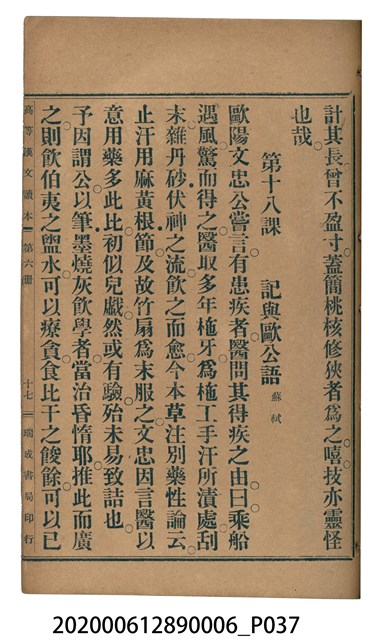 計其長曾不盈寸蓋簡桃核修狹者爲之嘻技亦靈怪
也哉
第十八課　記與歐公語　蘇軾
歐陽文忠公嘗言有患疾者醫問其得疾之由曰乘船
遇風驚而得之醫取多年柂牙爲柂工手汗所漬處刮
末雜丹砂伏神之流飲之而愈今本草注別藥性論云
止汗用麻黃根節及故竹扇爲末服之文忠因言醫以
意用藥多此比初似兒戲然或有驗殆未易致詰也
予因謂公以筆墨燒灰飲學者當治昏惰耶推此而廣
之則飲伯夷之盥水可以療貪食比干之餕餘可以已
高等漢文讀本　第六冊　十七　瑞成書局印行
202000612890006_P037